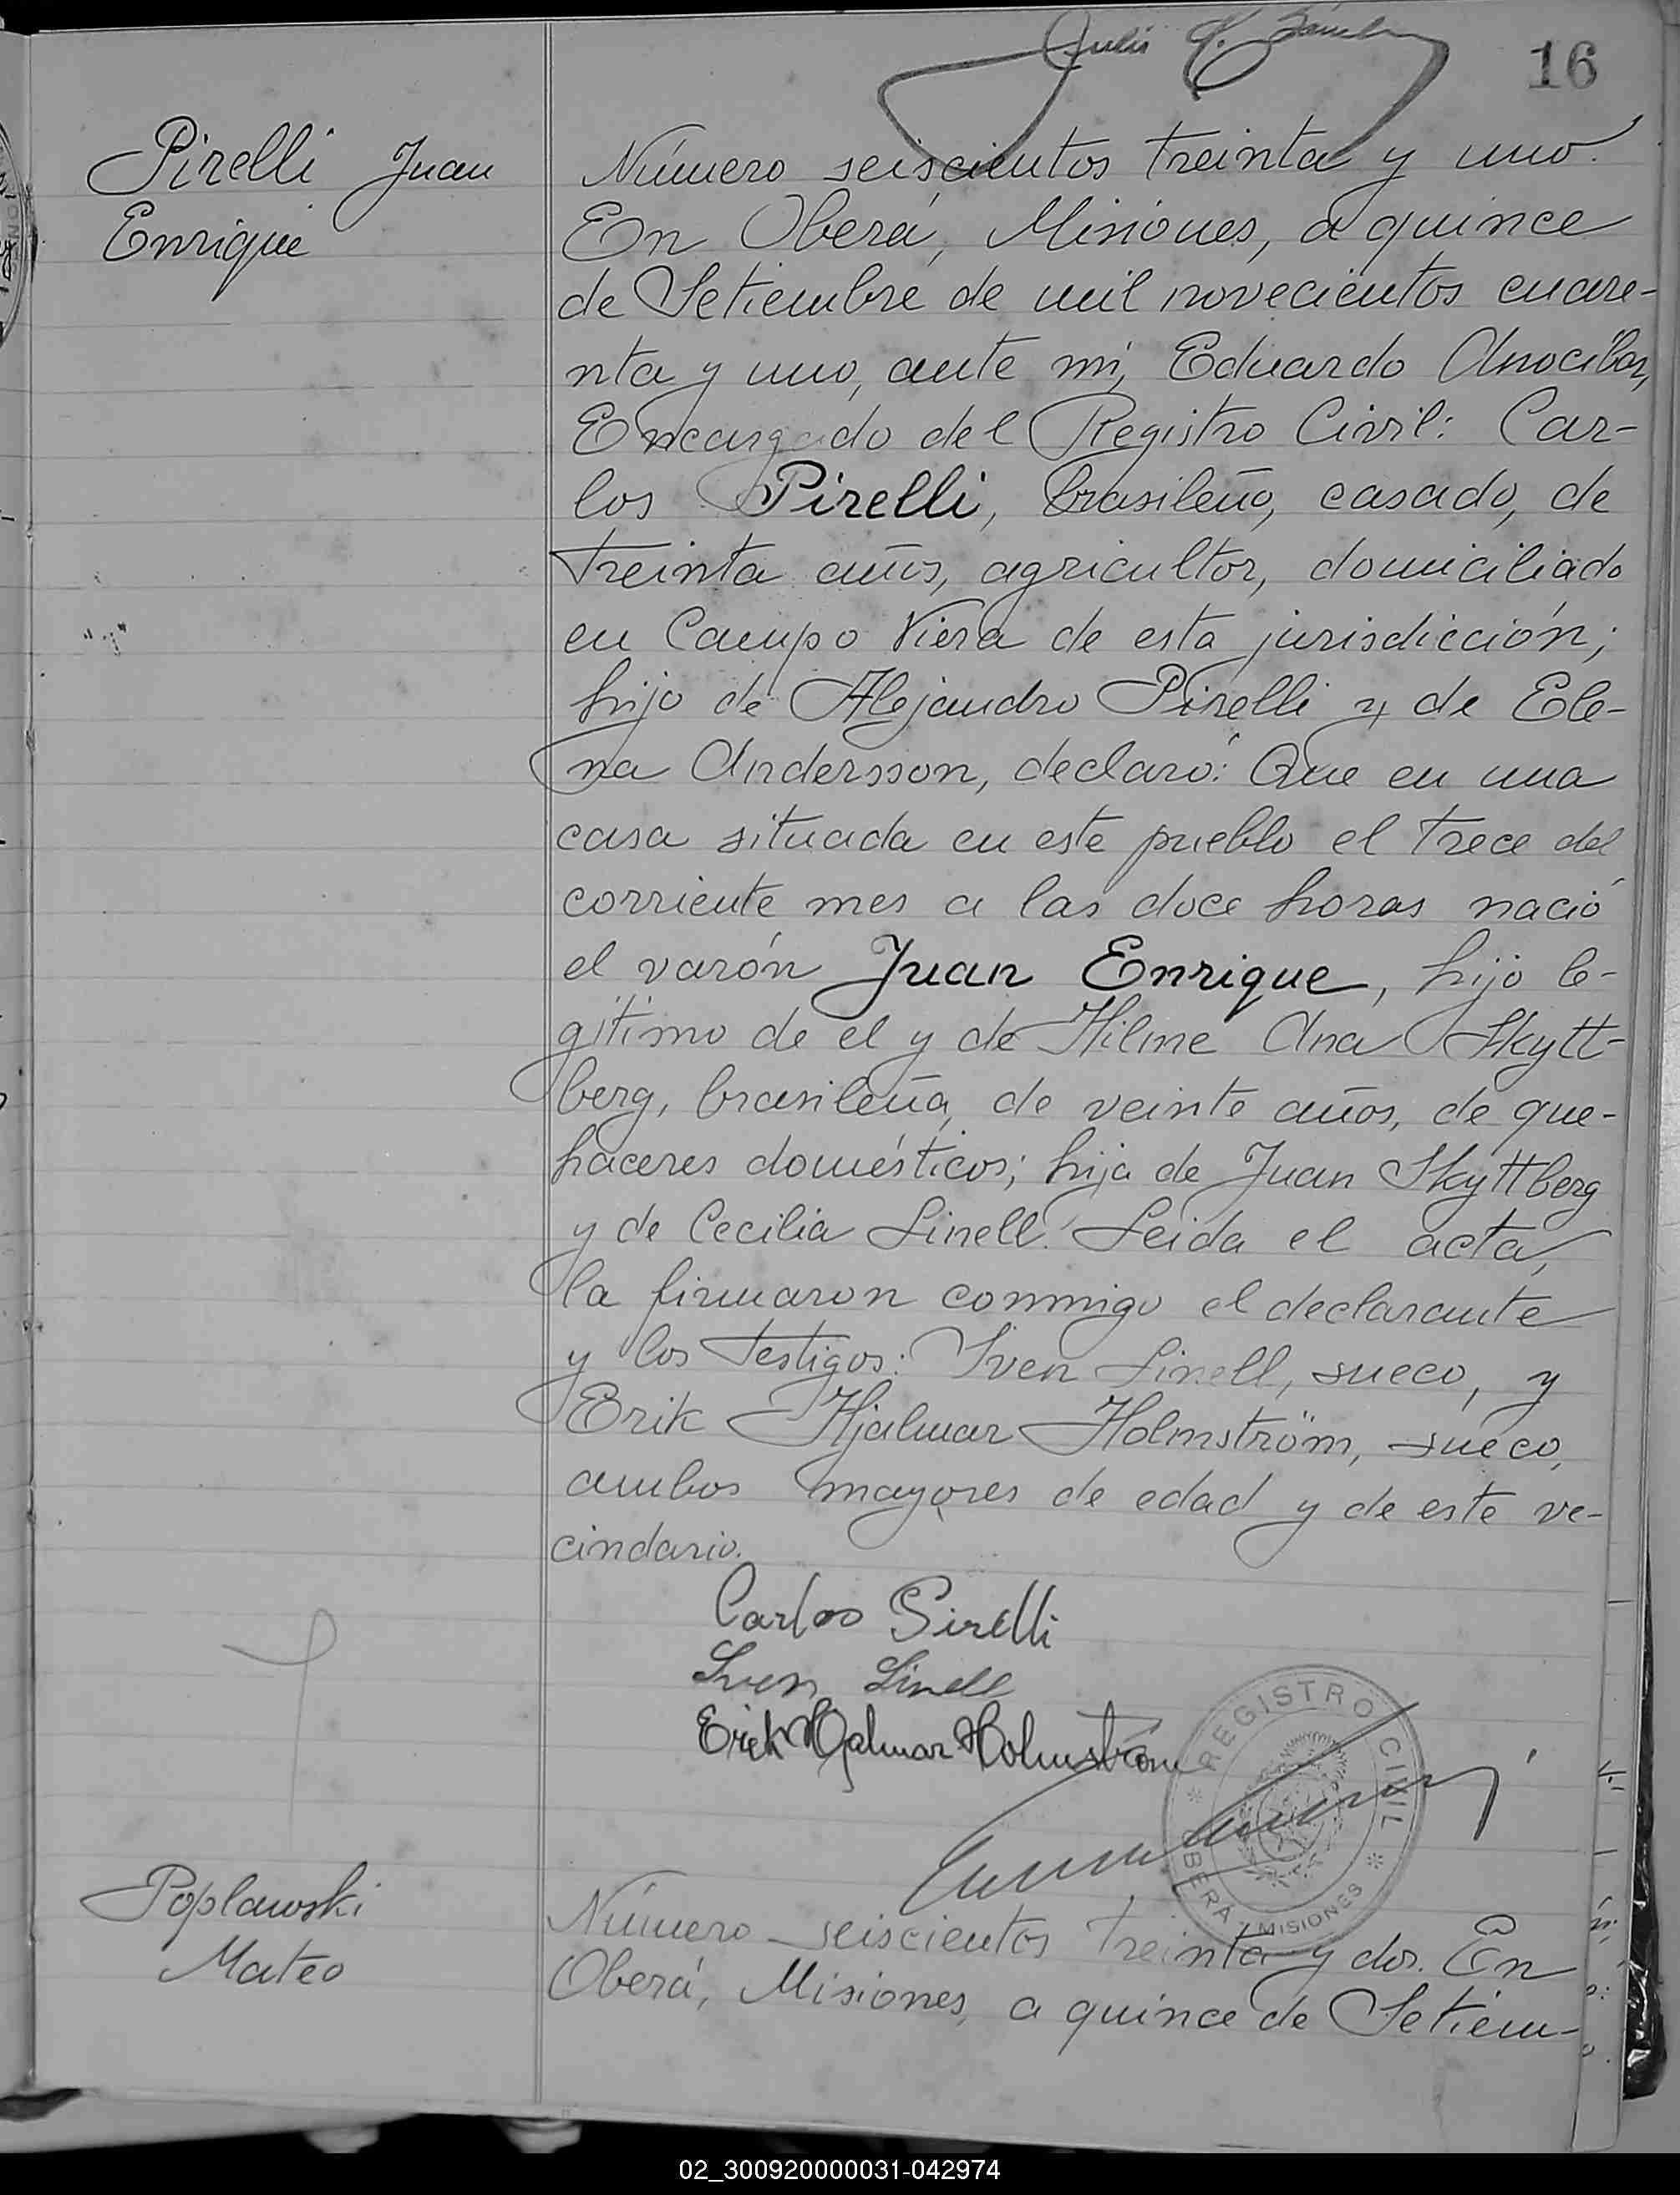 16
Pirelli Juan
Enrique
Número seiscientos treinta y uno.
En Oberá, Misiones, a quince
de Setiembre de mil novecientos cuare-
nta y uno, ante mi, Eduardo Anocibar,
Encargado del Registro Civil: Car-
los Pirelli, brasileño, casado, de
treinta años, agricultor, domiciliado
en Campo Viera de esta jurisdicción;
hijo de Alejandro Pirelli y de Ele-
na Andersson, declaró: Que en una
casa situada en este pueblo el trece del
corriente mes a las doce horas nació
el varón Juan Enrique, hijo le-
gitimo de el y de Hilme Ana Skytt-
berg, brasileña, de veinte años, de que-
haceres domésticos; hija de Juan Skyttberg
y de Cecilia Linell. Leida el acta,
la firmaron conmigo el declarante
y los testigos: Sven Linell, sueco, y
Erik Hjalmar Holmström, sueco,
ambos mayores de edad y de este ve-
cindario.
Carlos Pirelli
Sven Linell
Erik Hjalmar Holmström
REGISTRO CIVIL
OBERÁ MISIONES
Poplawski
Mateo
Número seiscientos treinta y dos. En
Oberá, Misiones, a quince de Setiem-
02_300920000031-042974